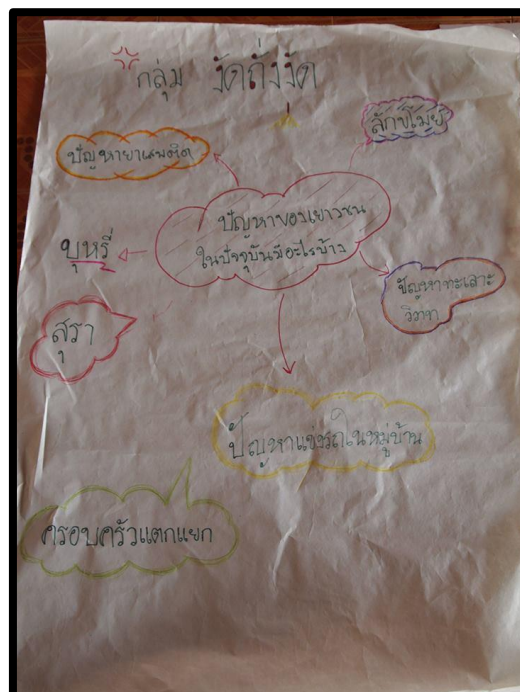 กลุ่ม งัดถั่งงัด
ลักขโมย
ปัญหายาเสพติด
ปัญหาของเยาวชน
ในปัจจุบันมีอะไรบ้าง
บุหรี่
ปัญหาทะเลาะ
วิวาท
สุรา
ปัญหาแข่งรถในหมู่บ้าน
ครอบครัวแตกแยก